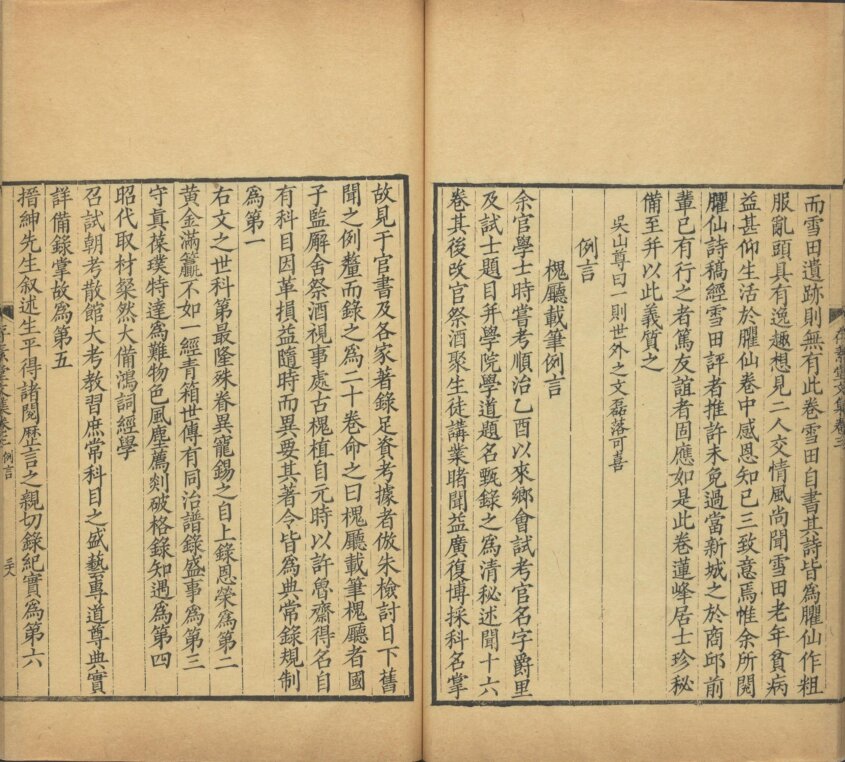 而雪田遺跡則無有此卷雪田自書其詩皆為臞仙作粗
服亂頭具有逸趣想見二人交情風尚聞雪田老年貧病
益甚仰生活於臞仙卷中感恩知已三致意焉惟余所閱
臞仙詩稿經雪田評者推許未免過當新城之於商邱前
輩已有行之者篤友誼者固應如是此卷蓮峰居士珍秘
備至并以此義質之
吳山尊曰一則世外之文磊落可喜
例言
槐廳載筆例言
余官學士時嘗考順治乙酉以來鄉會試考官名字爵里
及試士題目并學院學道題名甄錄之為清秘述聞十六
卷其後改官祭酒聚生徒講業睹聞益廣復博採科名掌
故見于官書及各家著錄足資考據者倣朱檢討日下舊
聞之例釐而錄之為二十卷命之曰槐廳載筆槐廳者國
子監廨舍祭酒視事處古槐植自元時以許魯齋得名自
有科目因革損益隨時而異要其著令皆為典常錄規制
為第一
右文之世科第最隆殊眷異寵錫之自上錄恩榮為第二
黃金滿籯不如一經青箱世傳有同治譜錄盛事為第三
守真葆璞特達為難物色風塵薦剡破格錄知遇為第四
昭代取材粲然大備鴻詞經學
召試朝考散館大考教習庶常科目之盛藝專道尊典實
詳備錄掌故為第五
搢紳先生叙述生平得諸閱歷言之親切錄紀實為第六
存素堂文集卷三 例言
存素堂文集卷三